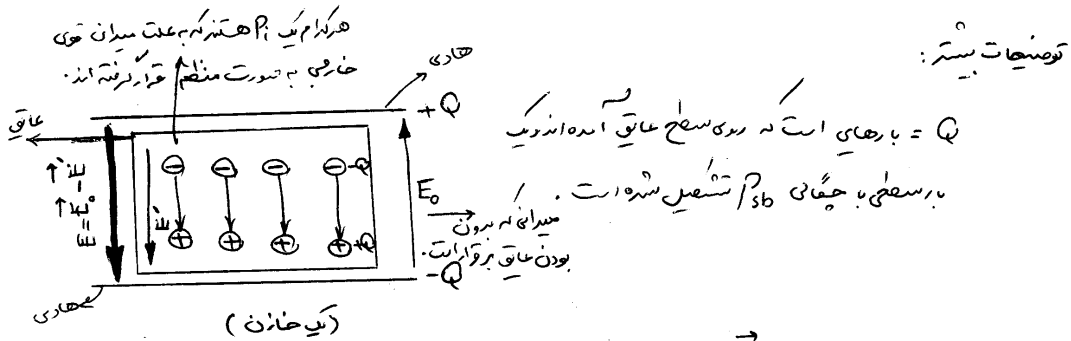 توضیحات بیشتر:
Q = بارهایی است که روی سطح عایق آمده‌اند و یک
بار سطحی با چگالی ρsb تشکیل شده است.
هر کدام یک Pi هستند که به علت میدان قوی
خارجی به صورت منظم قرار گرفته اند.
هادی
عایق
+Q
- - - - -Q
E₀
E = E₀ - E'
E'
+ + + + +Q
میدانی که بدون
بودن عایق برقرار است.
-Q
هادی
(یک خازن)